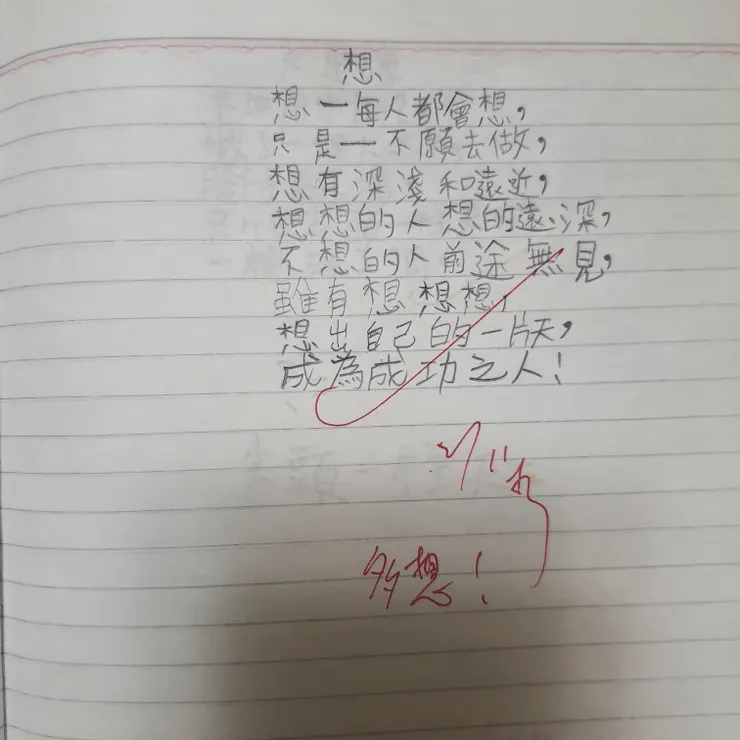 想
想一每人都會想,
只是一不願去做,
想有深淺和遠近,
想想的人想的遠深,
不想的人前途無見,
雖有想想想,
想出自己的一片天,
成為成功之人!
多想!